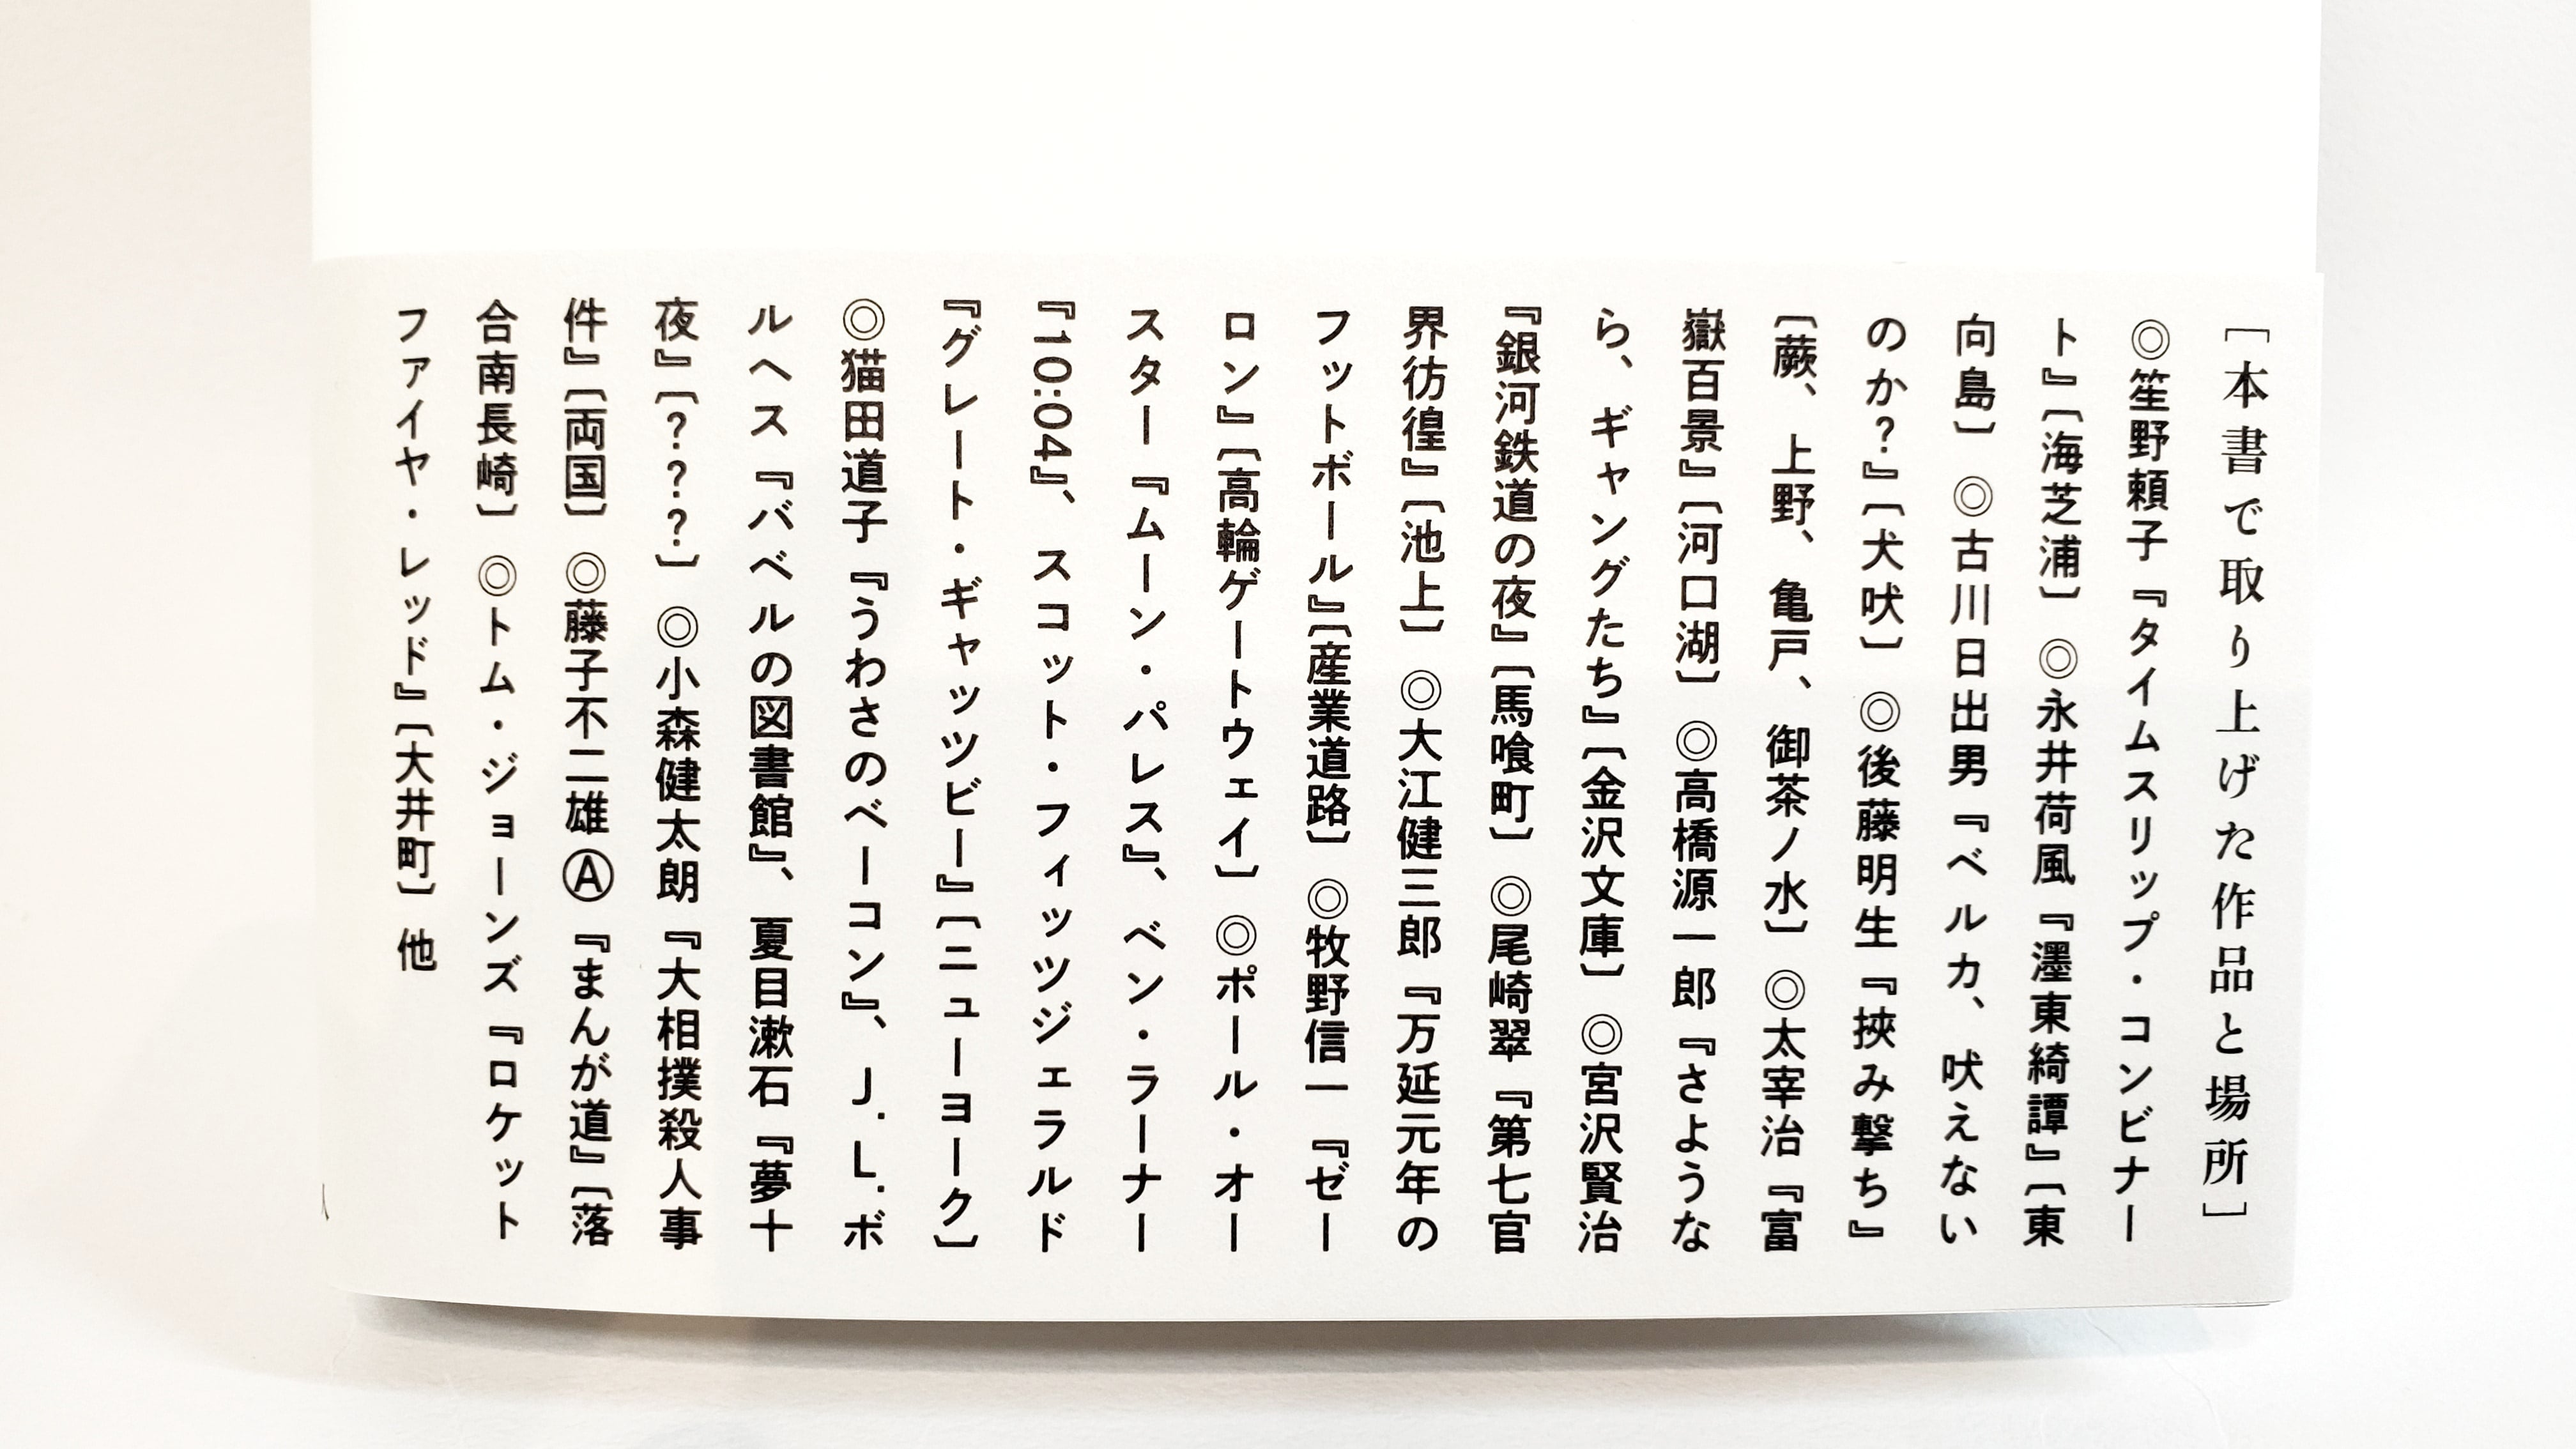 ［本書で取り上げた作品と場所］
◎笙野頼子『タイムスリップ・コンビナー
ト』〔海芝浦〕 ◎永井荷風『濹東綺譚』〔東
向島〕 ◎古川日出男『ベルカ、吠えない
のか？』〔犬吠〕 ◎後藤明生『挾み撃ち』
〔蕨、上野、亀戸、御茶ノ水〕 ◎太宰治『富
嶽百景』〔河口湖〕 ◎高橋源一郎『さような
ら、ギャングたち』〔金沢文庫〕 ◎宮沢賢治
『銀河鉄道の夜』〔馬喰町〕 ◎尾崎翠『第七官
界彷徨』〔池上〕 ◎大江健三郎『万延元年の
フットボール』〔産業道路〕 ◎牧野信一『ゼー
ロン』〔高輪ゲートウェイ〕 ◎ポール・オー
スター『ムーン・パレス』、ベン・ラーナー
『10:04』、スコット・フィッツジェラルド
『グレート・ギャッツビー』〔ニューヨーク〕
◎猫田道子『うわさのベーコン』、J．L．ボ
ルヘス『バベルの図書館』、夏目漱石『夢十
夜』〔？？？〕 ◎小森健太朗『大相撲殺人事
件』〔両国〕 ◎藤子不二雄Ⓐ『まんが道』〔落
合南長崎〕 ◎トム・ジョーンズ『ロケット
ファイヤ・レッド』〔大井町〕他